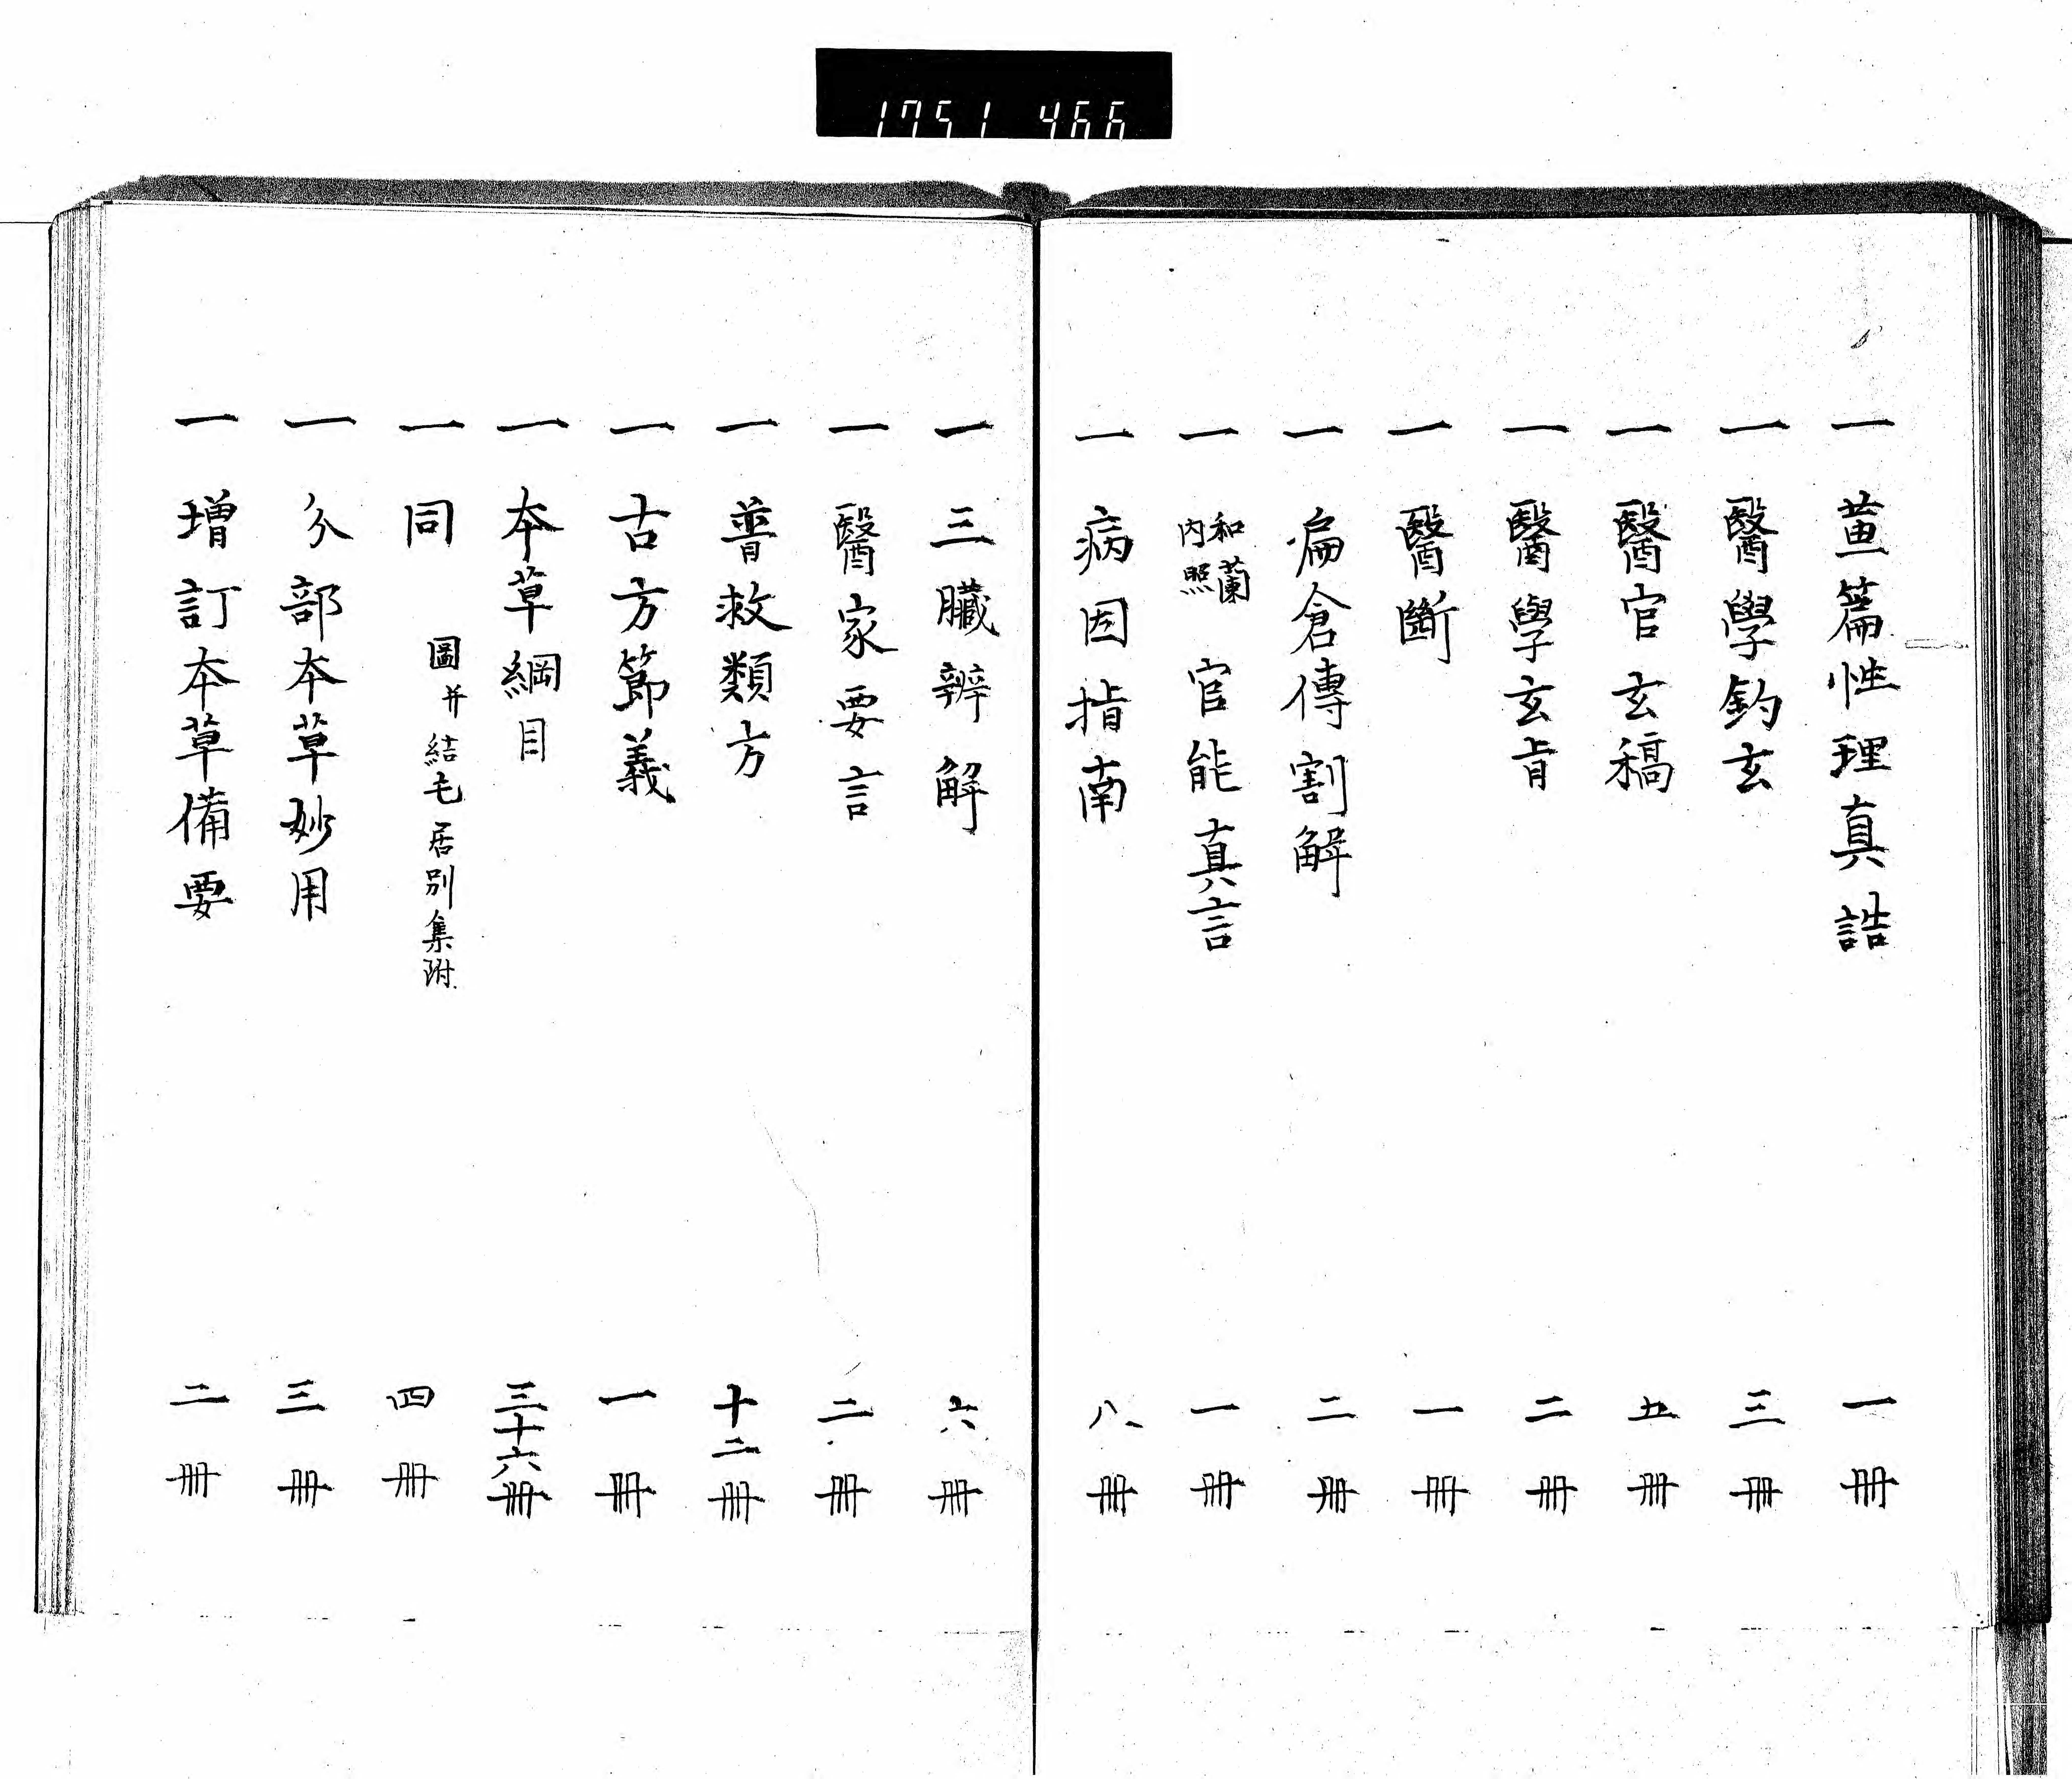 1751 466
一 蓳篇性理真誥 一冊
一 醫學鈎玄 三冊
一 醫官玄稿 五冊
一 醫學玄旨 二冊
一 醫斷 一冊
一 扁倉傳割解 二冊
一 和蘭内照 官能真言 一冊
一 病因指南 八冊
一 三臓辨解 六冊
一 醫家要言 二冊
一 普救類方 十二冊
一 古方節義 一冊
一 本草綱目 三十六冊
一 同 圖并結毛居別集附 四冊
一 分部本草妙用 三冊
一 増訂本草備要 二冊